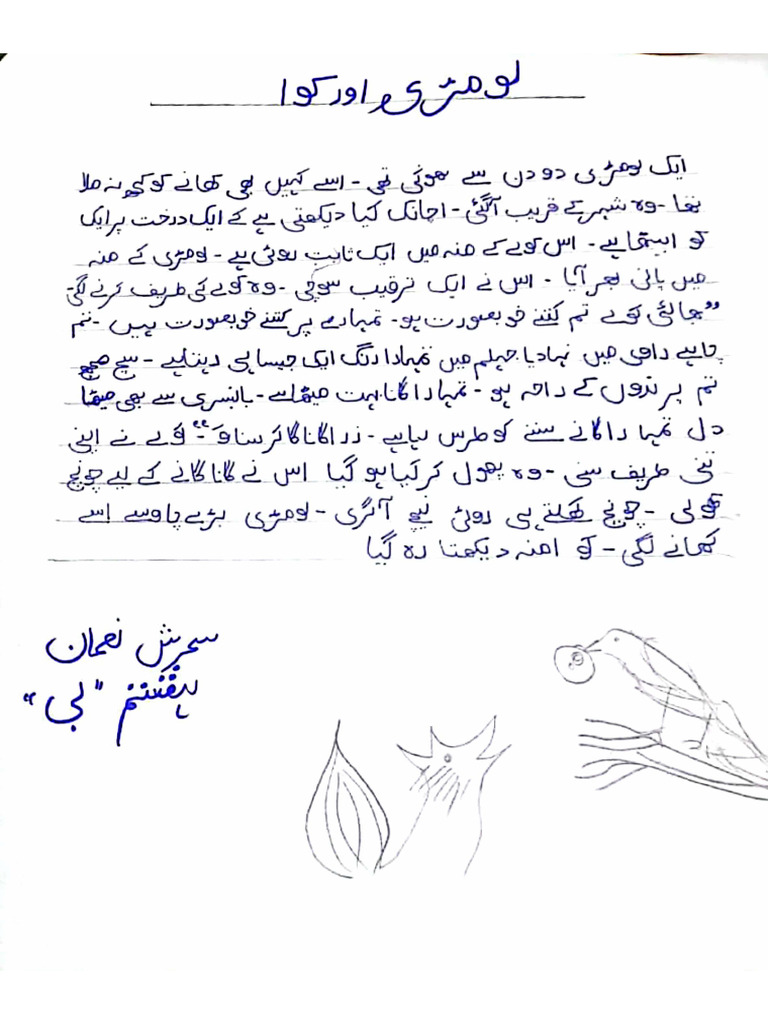 لومڑی اور کوا
ایک لومڑی دو دن سے بھوکی تھی - اسے کہیں بھی کھانے کو کچھ نہ ملا
تھا - وہ شہر کے قریب آگئی - اچانک کیا دیکھتی ہے کے ایک درخت پر ایک
کوا بیٹھا ہے - اس کوے کے منہ میں ایک ثابت روٹی ہے - لومڑی کے منہ
میں پانی بھر آیا - اس نے ایک ترقیب سوچی - وہ کوے کی طریف کرنے لگی -
"بھائی کوے تم کتنے خوبصورت ہو - تمہارے پر کتنے خوبصورت ہیں - تم
چاہے میں نہا دیا جہلم میں تمہارا رنگ ایک جیسا ہی رہتا ہے - سچ مچ
تم پرندوں کے راجہ ہو - تمہارا گانا بہت میٹھا ہے - بانسری سے بھی میٹھا
دل تمہارا گانے سننے کو طرس رہا ہے - ذرا گانا گا کر سناؤ" - کوے نے اپنی
اتنی طریف سنی - وہ پھول کر کپا ہو گیا اس نے گانا گانے کے لیے چونچ
کھولی - چونچ کھلتے ہی روٹی نیچے آگری - لومڑی بڑے چاو سے اسے
کھانے لگی - کوا منہ دیکھتا رہ گیا
سحرش نعمان
ہفتم "بی"